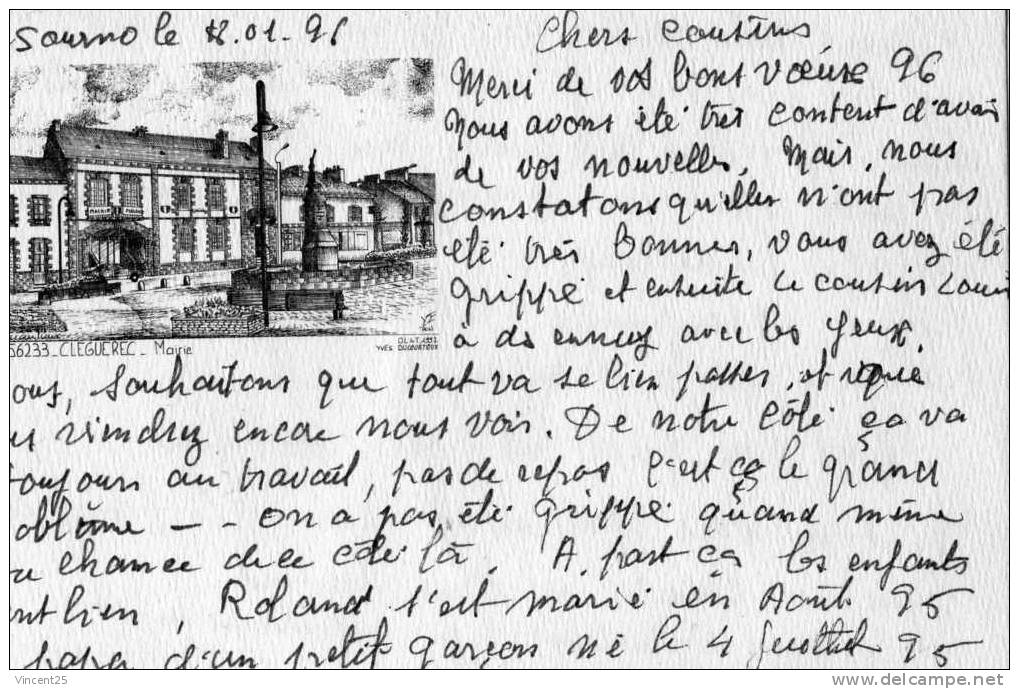 Sourno le 18.01-96
Chers cousins,
Merci de vos bons vœux 96
Nous avons été très content d'avoir
de vos nouvelles, Mais, nous
constatons qu'elles n'ont pas
été très bonnes, vous avez été
grippé et ensuite le cousin Louis
à des ennuy avec les yeux.
MAIRIE
YE
OL & T. 1992
YVES DUCOURTIOUX
56233_CLEGUEREC_Mairie
ous, souhaitons que tout va se bien passer, et que
us viendrez encore nous voir. De notre côté ça va
toujours au travail, pas de repos c'est ça le grand
oblème -- On a pas été grippé quand même
a chance de ce côté là. A part ça les enfants
nt bien, Roland s'est marié en Août 95
papa d'un petit garçon né le 4 Juillet 95
Vincent25
www.delcampe.net